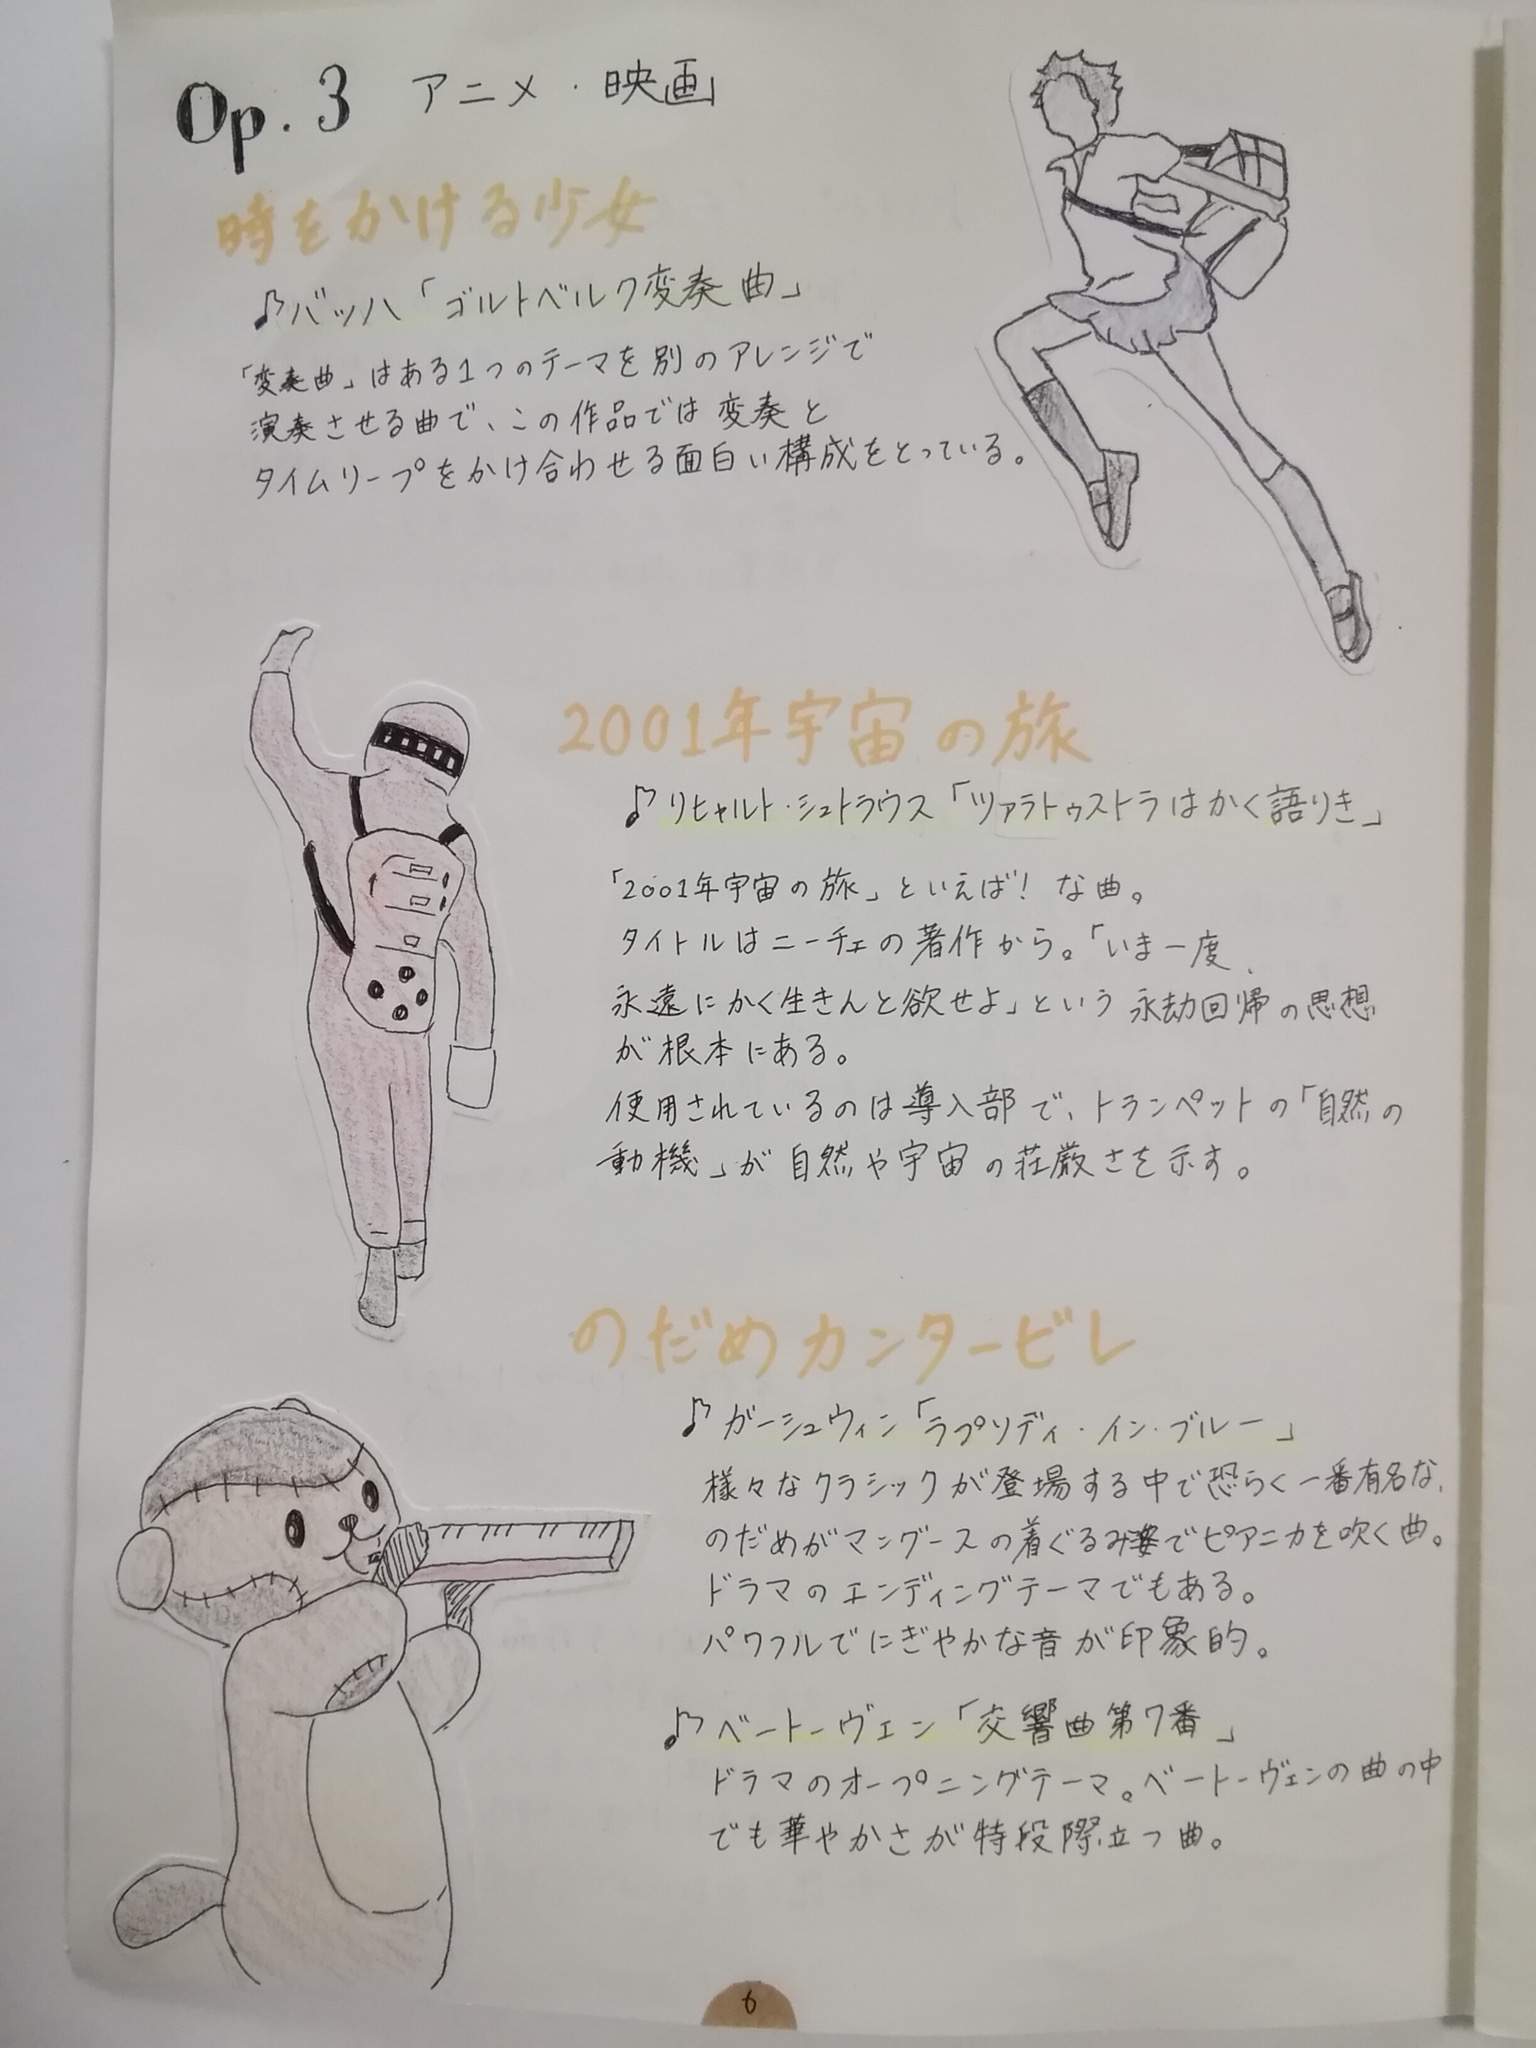 Op. 3 アニメ・映画
時をかける少女
♪バッハ「ゴルトベルク変奏曲」
「変奏曲」はある1つのテーマを別のアレンジで
演奏させる曲で、この作品では変奏と
タイムリープをかけ合わせる面白い構成をとっている。
2001年宇宙の旅
♪リヒャルト・シュトラウス「ツァラトゥストラはかく語りき」
「2001年宇宙の旅」といえば！な曲。
タイトルはニーチェの著作から。「いま一度、
永遠にかく生きんと欲せよ」という永劫回帰の思想
が根本にある。
使用されているのは導入部で、トランペットの「自然の
動機」が自然や宇宙の荘厳さを示す。
のだめカンタービレ
♪ガーシュウィン「ラプソディ・イン・ブルー」
様々なクラシックが登場する中で恐らく一番有名な、
のだめがマングースの着ぐるみ姿でピアニカを吹く曲。
ドラマのエンディングテーマでもある。
パワフルでにぎやかな音が印象的。
♪ベートーヴェン「交響曲第7番」
ドラマのオープニングテーマ。ベートーヴェンの曲の中
でも華やかさが特段際立つ曲。
6